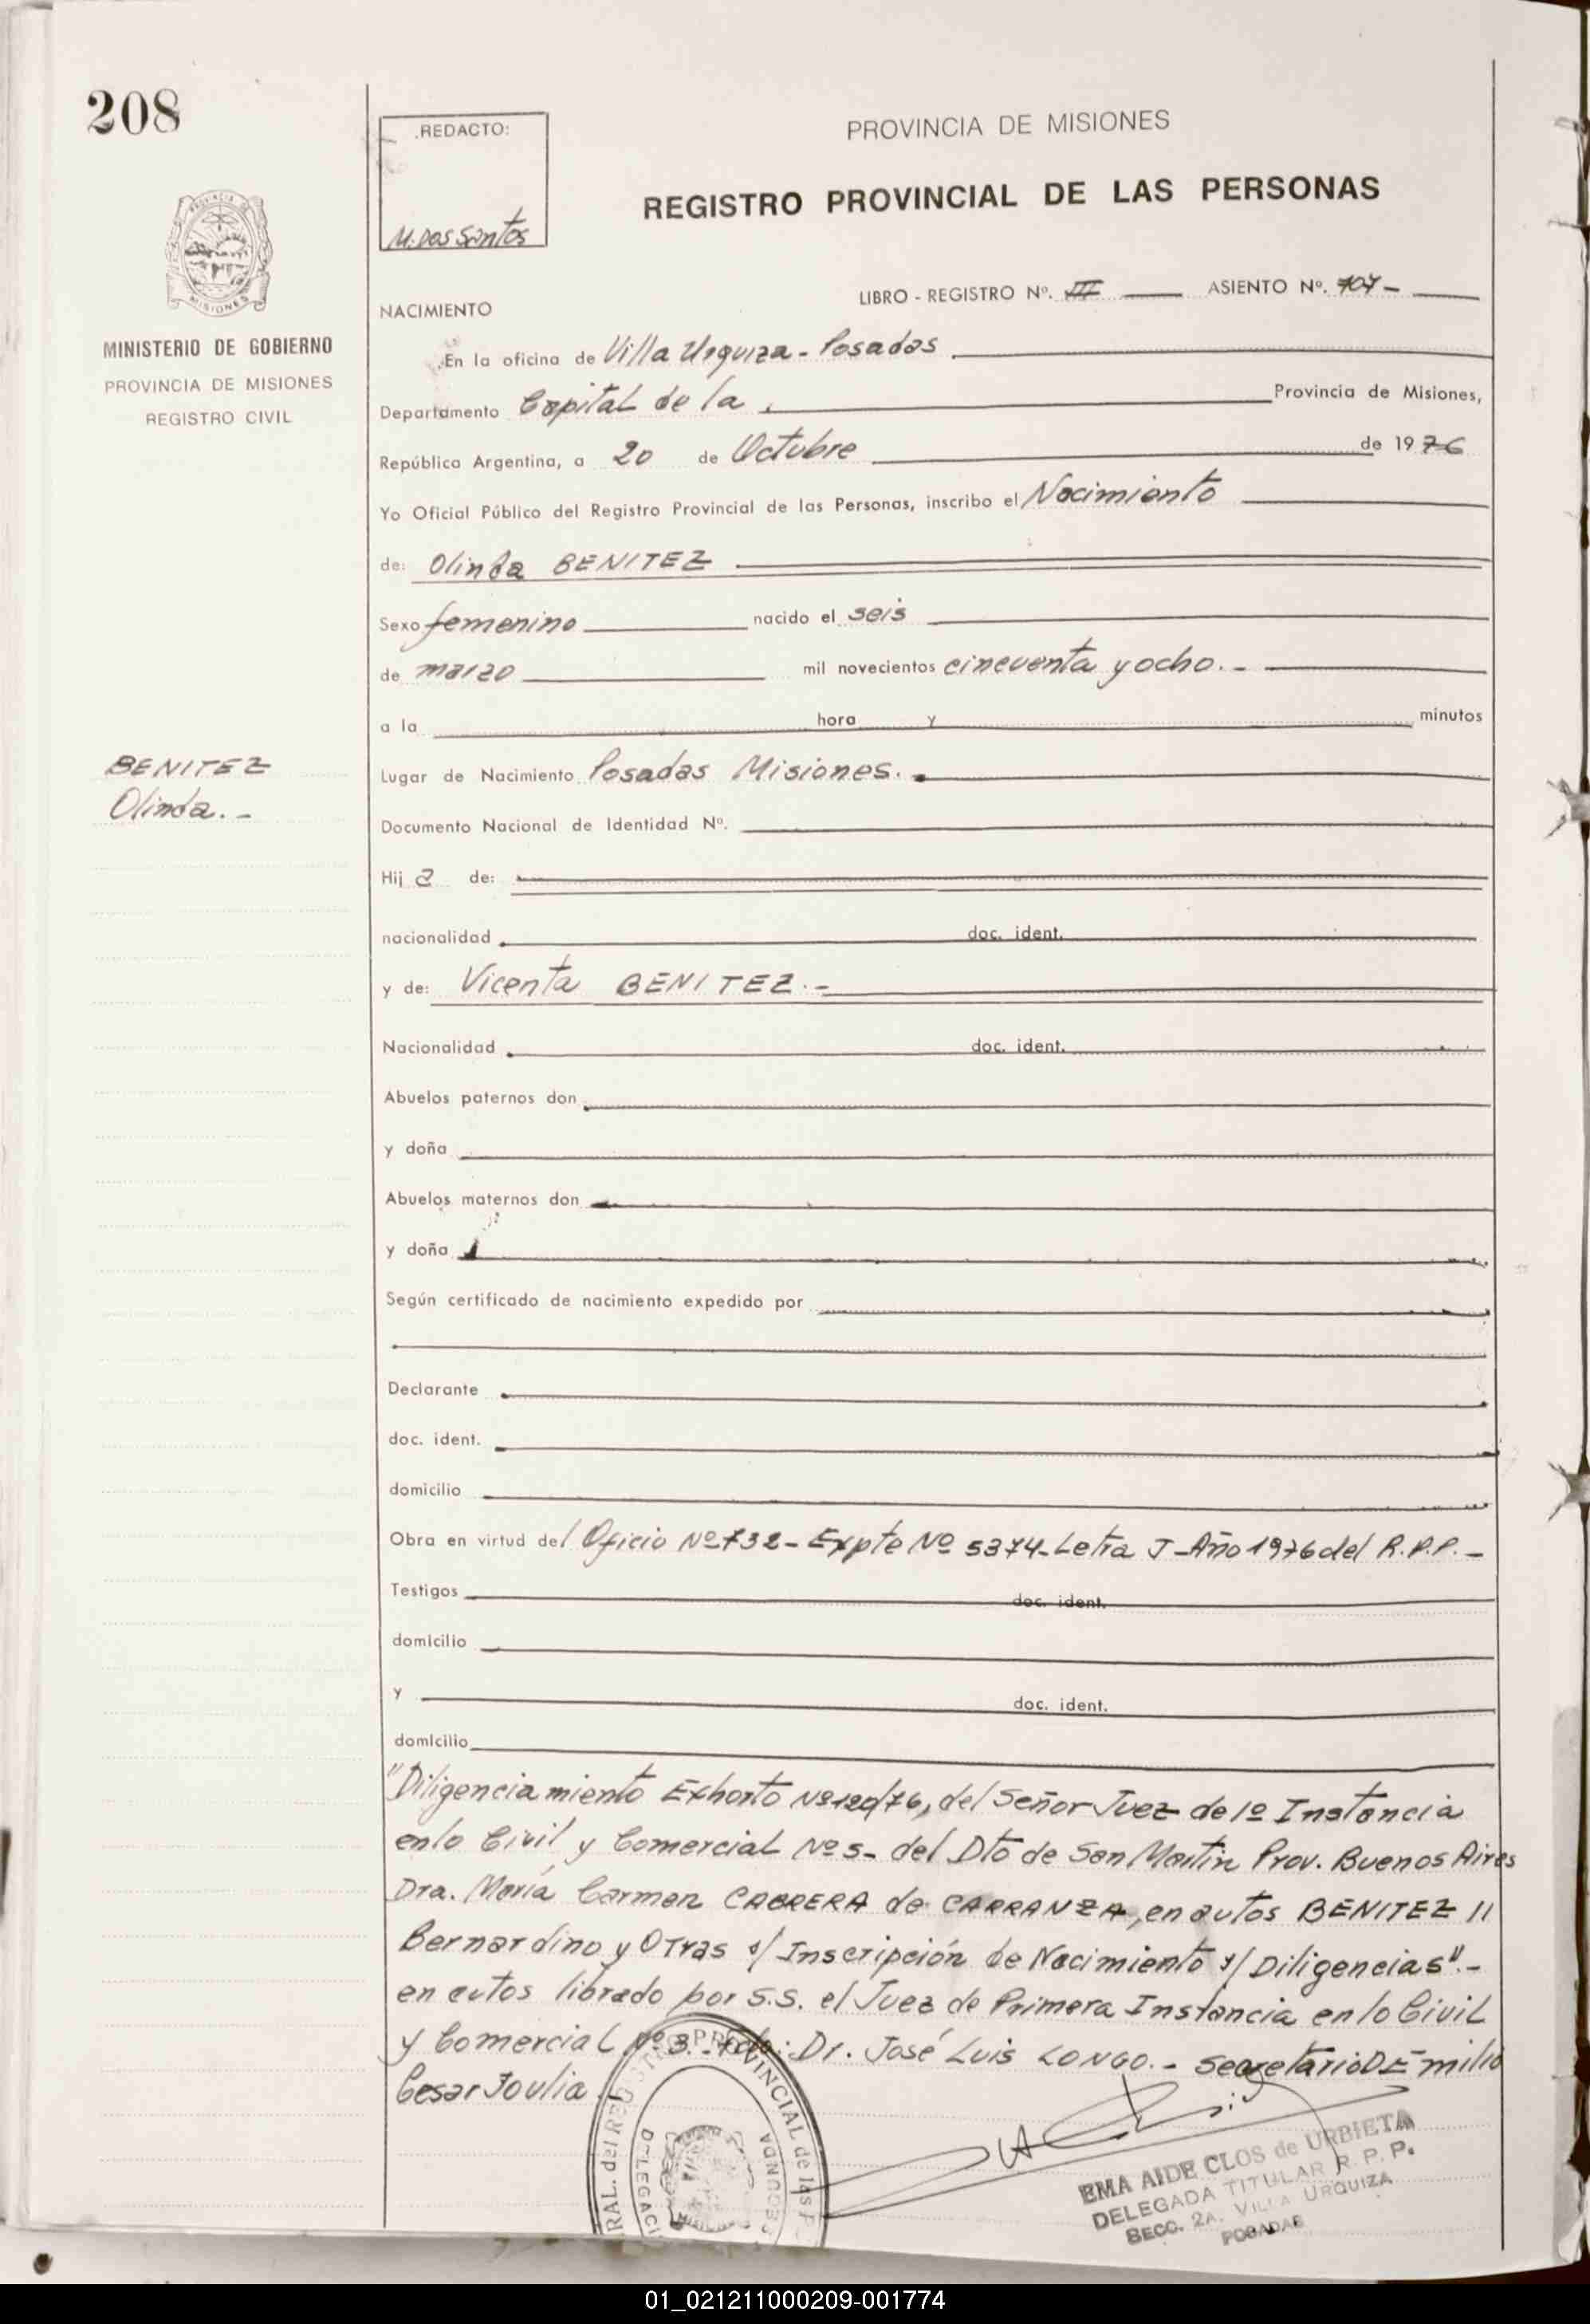 208
REDACTO:
M. Dos Santos
PROVINCIA DE MISIONES
REGISTRO PROVINCIAL DE LAS PERSONAS
PROVINCIA DE
MISIONES
MINISTERIO DE GOBIERNO
PROVINCIA DE MISIONES
REGISTRO CIVIL
LIBRO - REGISTRO Nº. III ASIENTO Nº. 107-
NACIMIENTO
En la oficina de Villa Urquiza - Posadas
Departamento Capital de la, Provincia de Misiones,
República Argentina, a 20 de Octubre de 1976
Yo Oficial Público del Registro Provincial de las Personas, inscribo el Nacimiento
de: Olinda BENITEZ
Sexo femenino nacido el seis
de marzo mil novecientos cincuenta y ocho.-
a la hora y minutos
BENITEZ
Olinda.-
Lugar de Nacimiento Posadas Misiones.
Documento Nacional de Identidad Nº.
Hij a de:
nacionalidad doc. ident.
y de: Vicenta BENITEZ.-
Nacionalidad doc. ident.
Abuelos paternos don
y doña
Abuelos maternos don
y doña
Según certificado de nacimiento expedido por
Declarante
doc. ident.
domicilio
Obra en virtud del Oficio Nº 732- Expte Nº 5374- Letra J- Año 1976 del R.P.P.-
Testigos doc. ident.
domicilio
y doc. ident.
domicilio
"Diligenciamiento Exhorto Nº 120/76, del Señor Juez de 1º Instancia
en lo Civil y Comercial Nº 5- del Dto de San Martin Prov. Buenos Aires
Dra. María Carmen CABRERA de CARRANZA, en autos BENITEZ //
Bernardino y Otras s/ Inscripción de Nacimiento s/ Diligencias".-
en autos librado por S.S. el Juez de Primera Instancia en lo Civil
y Comercial Nº 3.- Fdo: Dr. José Luis LONGO.- Secretario D Emilio
Cesar Joulia
GRAL. del REGISTRO PROVINCIAL de las P
DELEGACI
SEGUNDA
EMA AIDE CLOS de URBIETA
DELEGADA TITULAR R. P. P.
SECC. 2A. VILLA URQUIZA
POSADAS
01_021211000209-001774